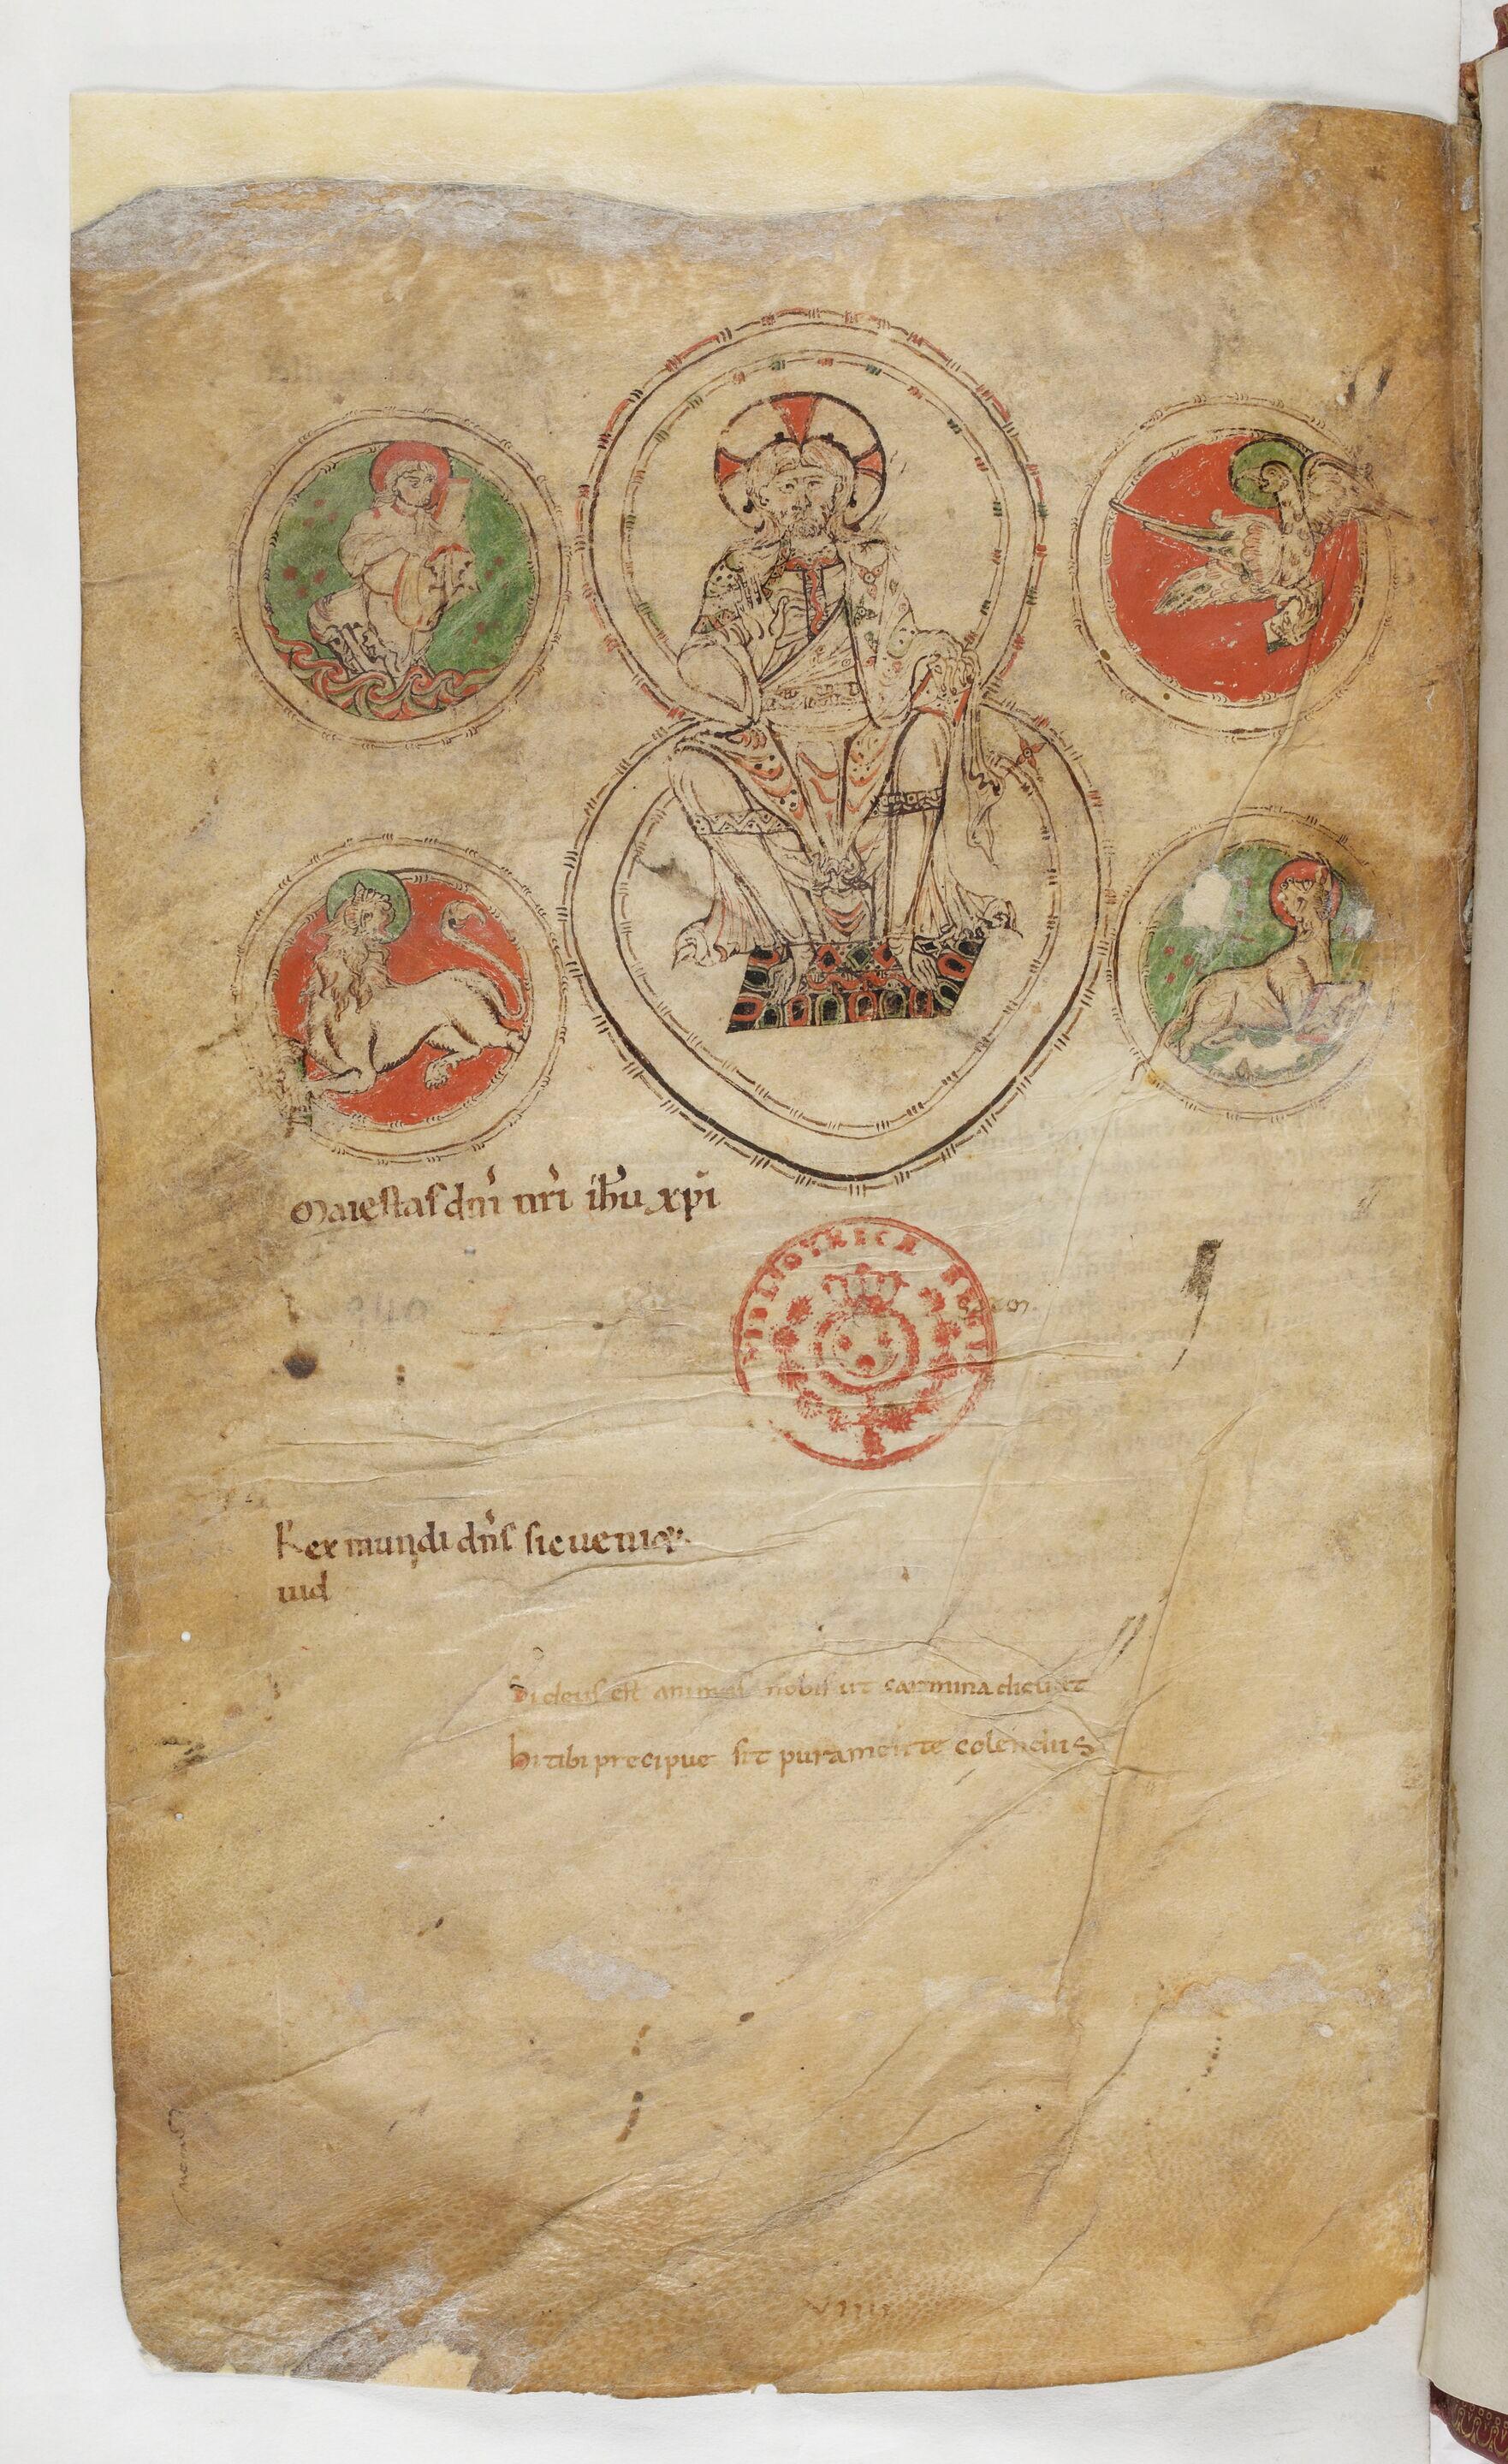 Maiestas dnī nrī ihū xpī
BIBLIOTHECA REGIA
Rex mundi dn̄s sic
uid
Si deus est animus nobis ut carmina dicunt
hi tibi precipue sit pura mente colendus
VIIII